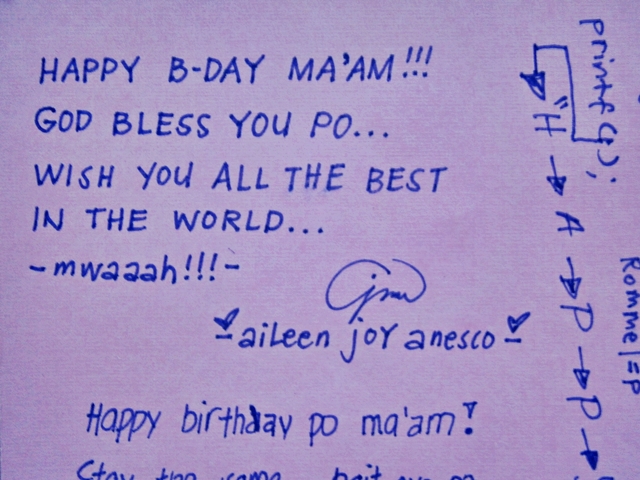 HAPPY B-DAY MA'AM!!!
GOD BLESS YOU PO...
WISH YOU ALL THE BEST
IN THE WORLD...
-mwaaah!!!-
-aileen joy anesco-
Happy birthday po ma'am!
Stay the same
printf();
"H → A → P → P →
Rommel =P